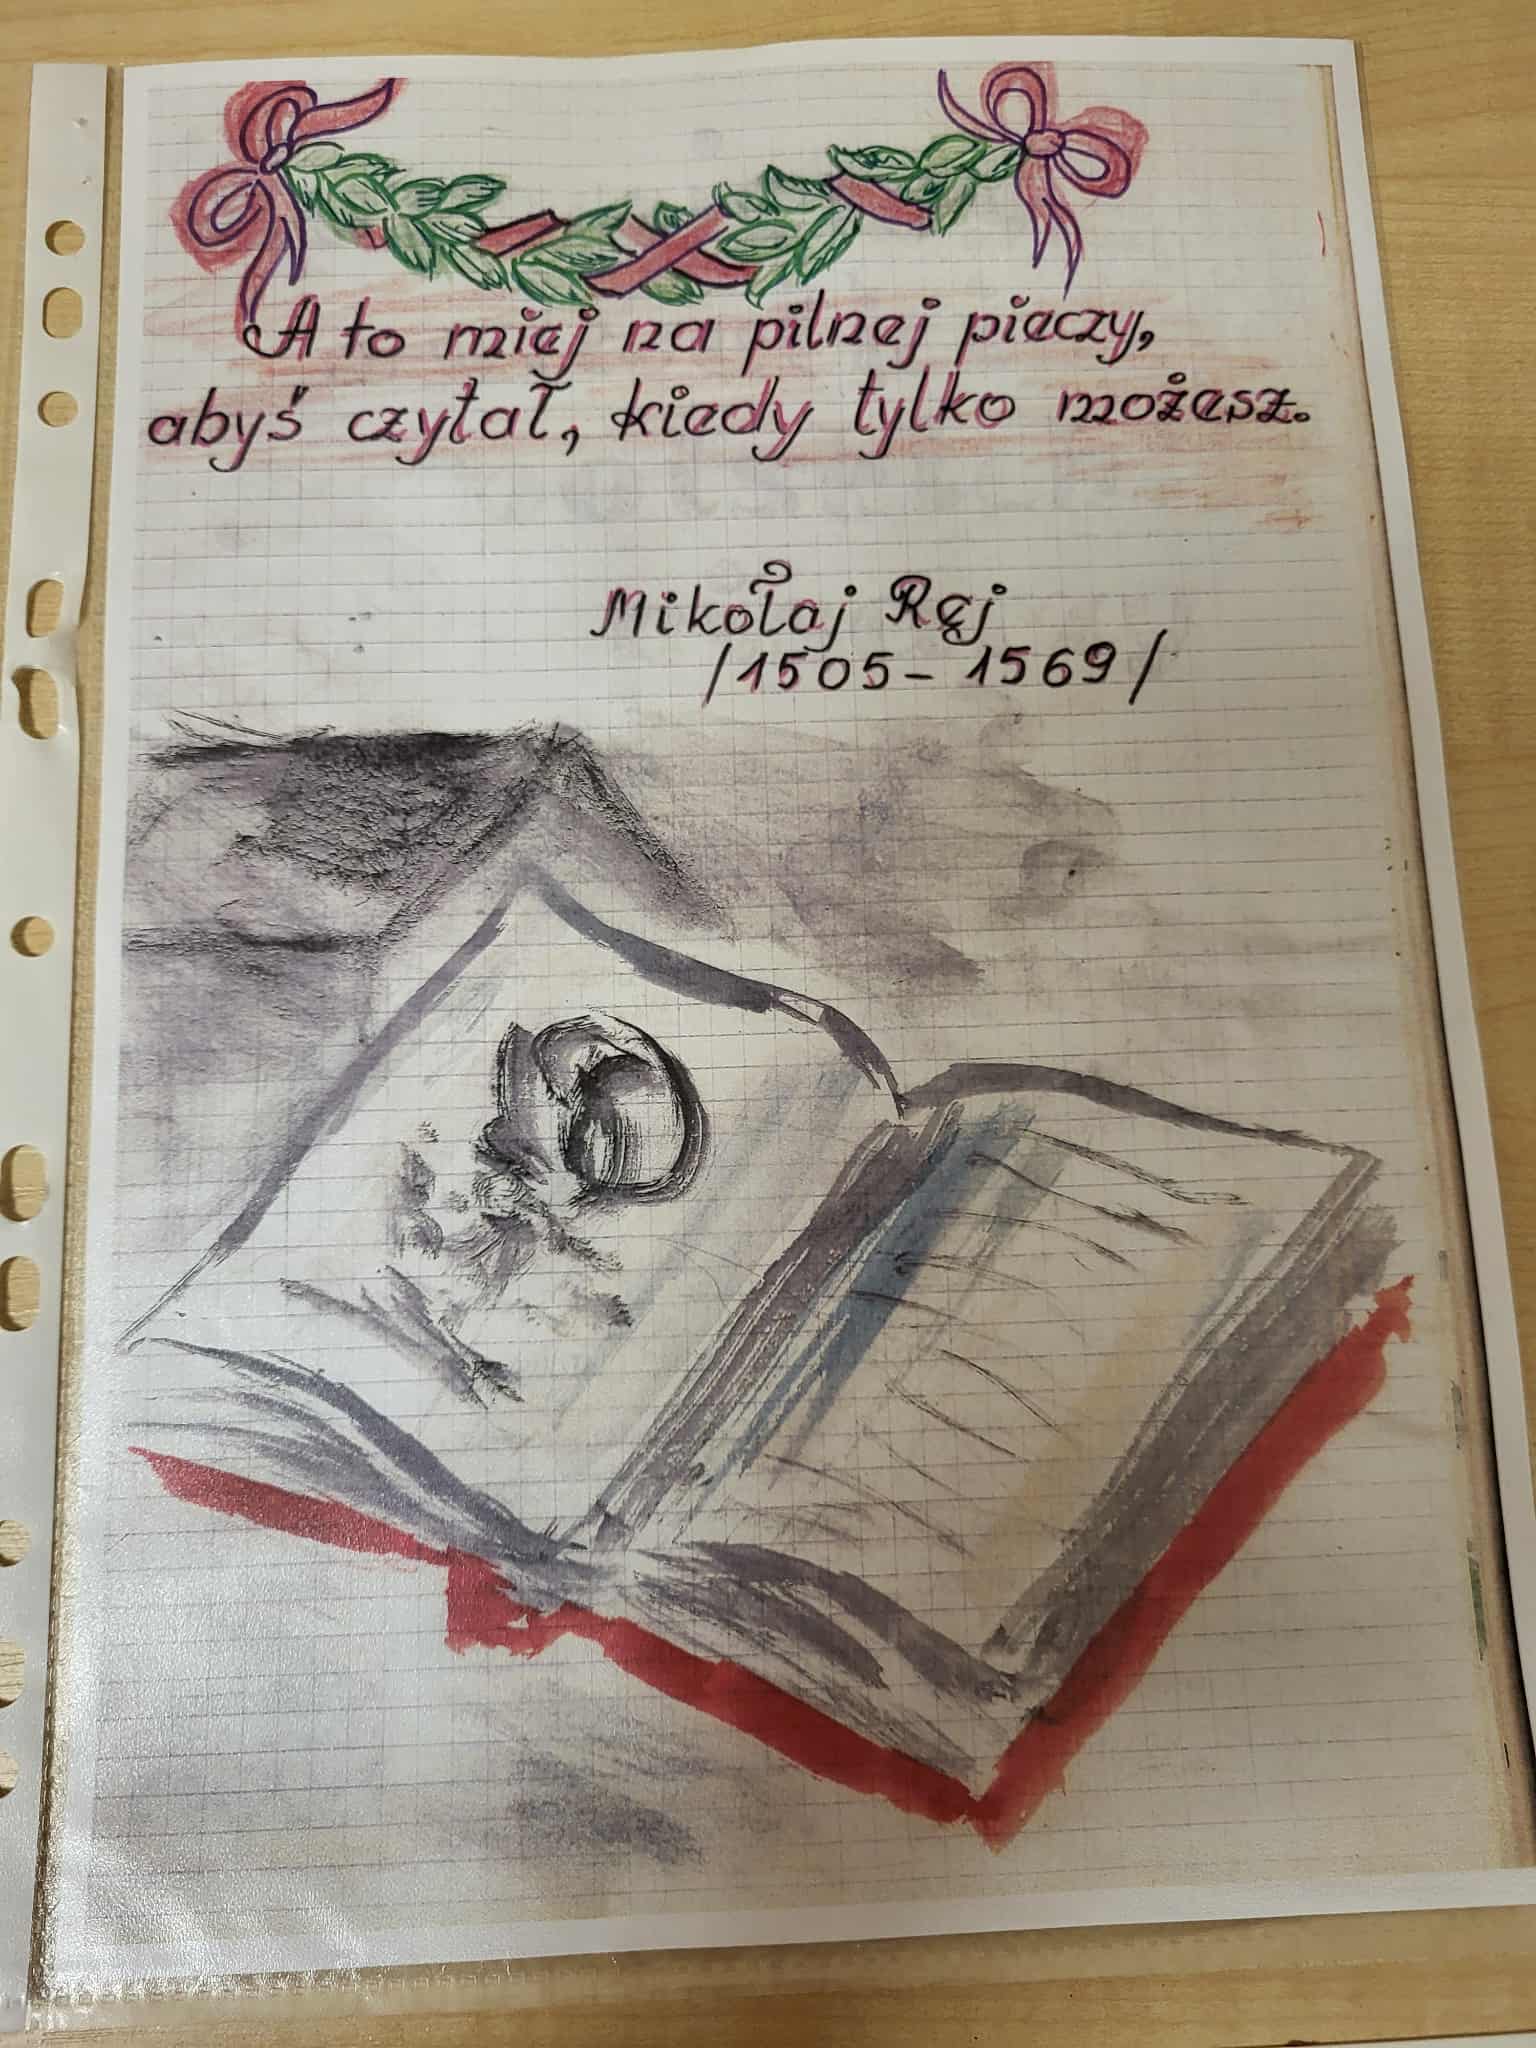 A to miej na pilnej pieczy,
abyś czytał, kiedy tylko możesz.
Mikołaj Rej
/1505-1569/